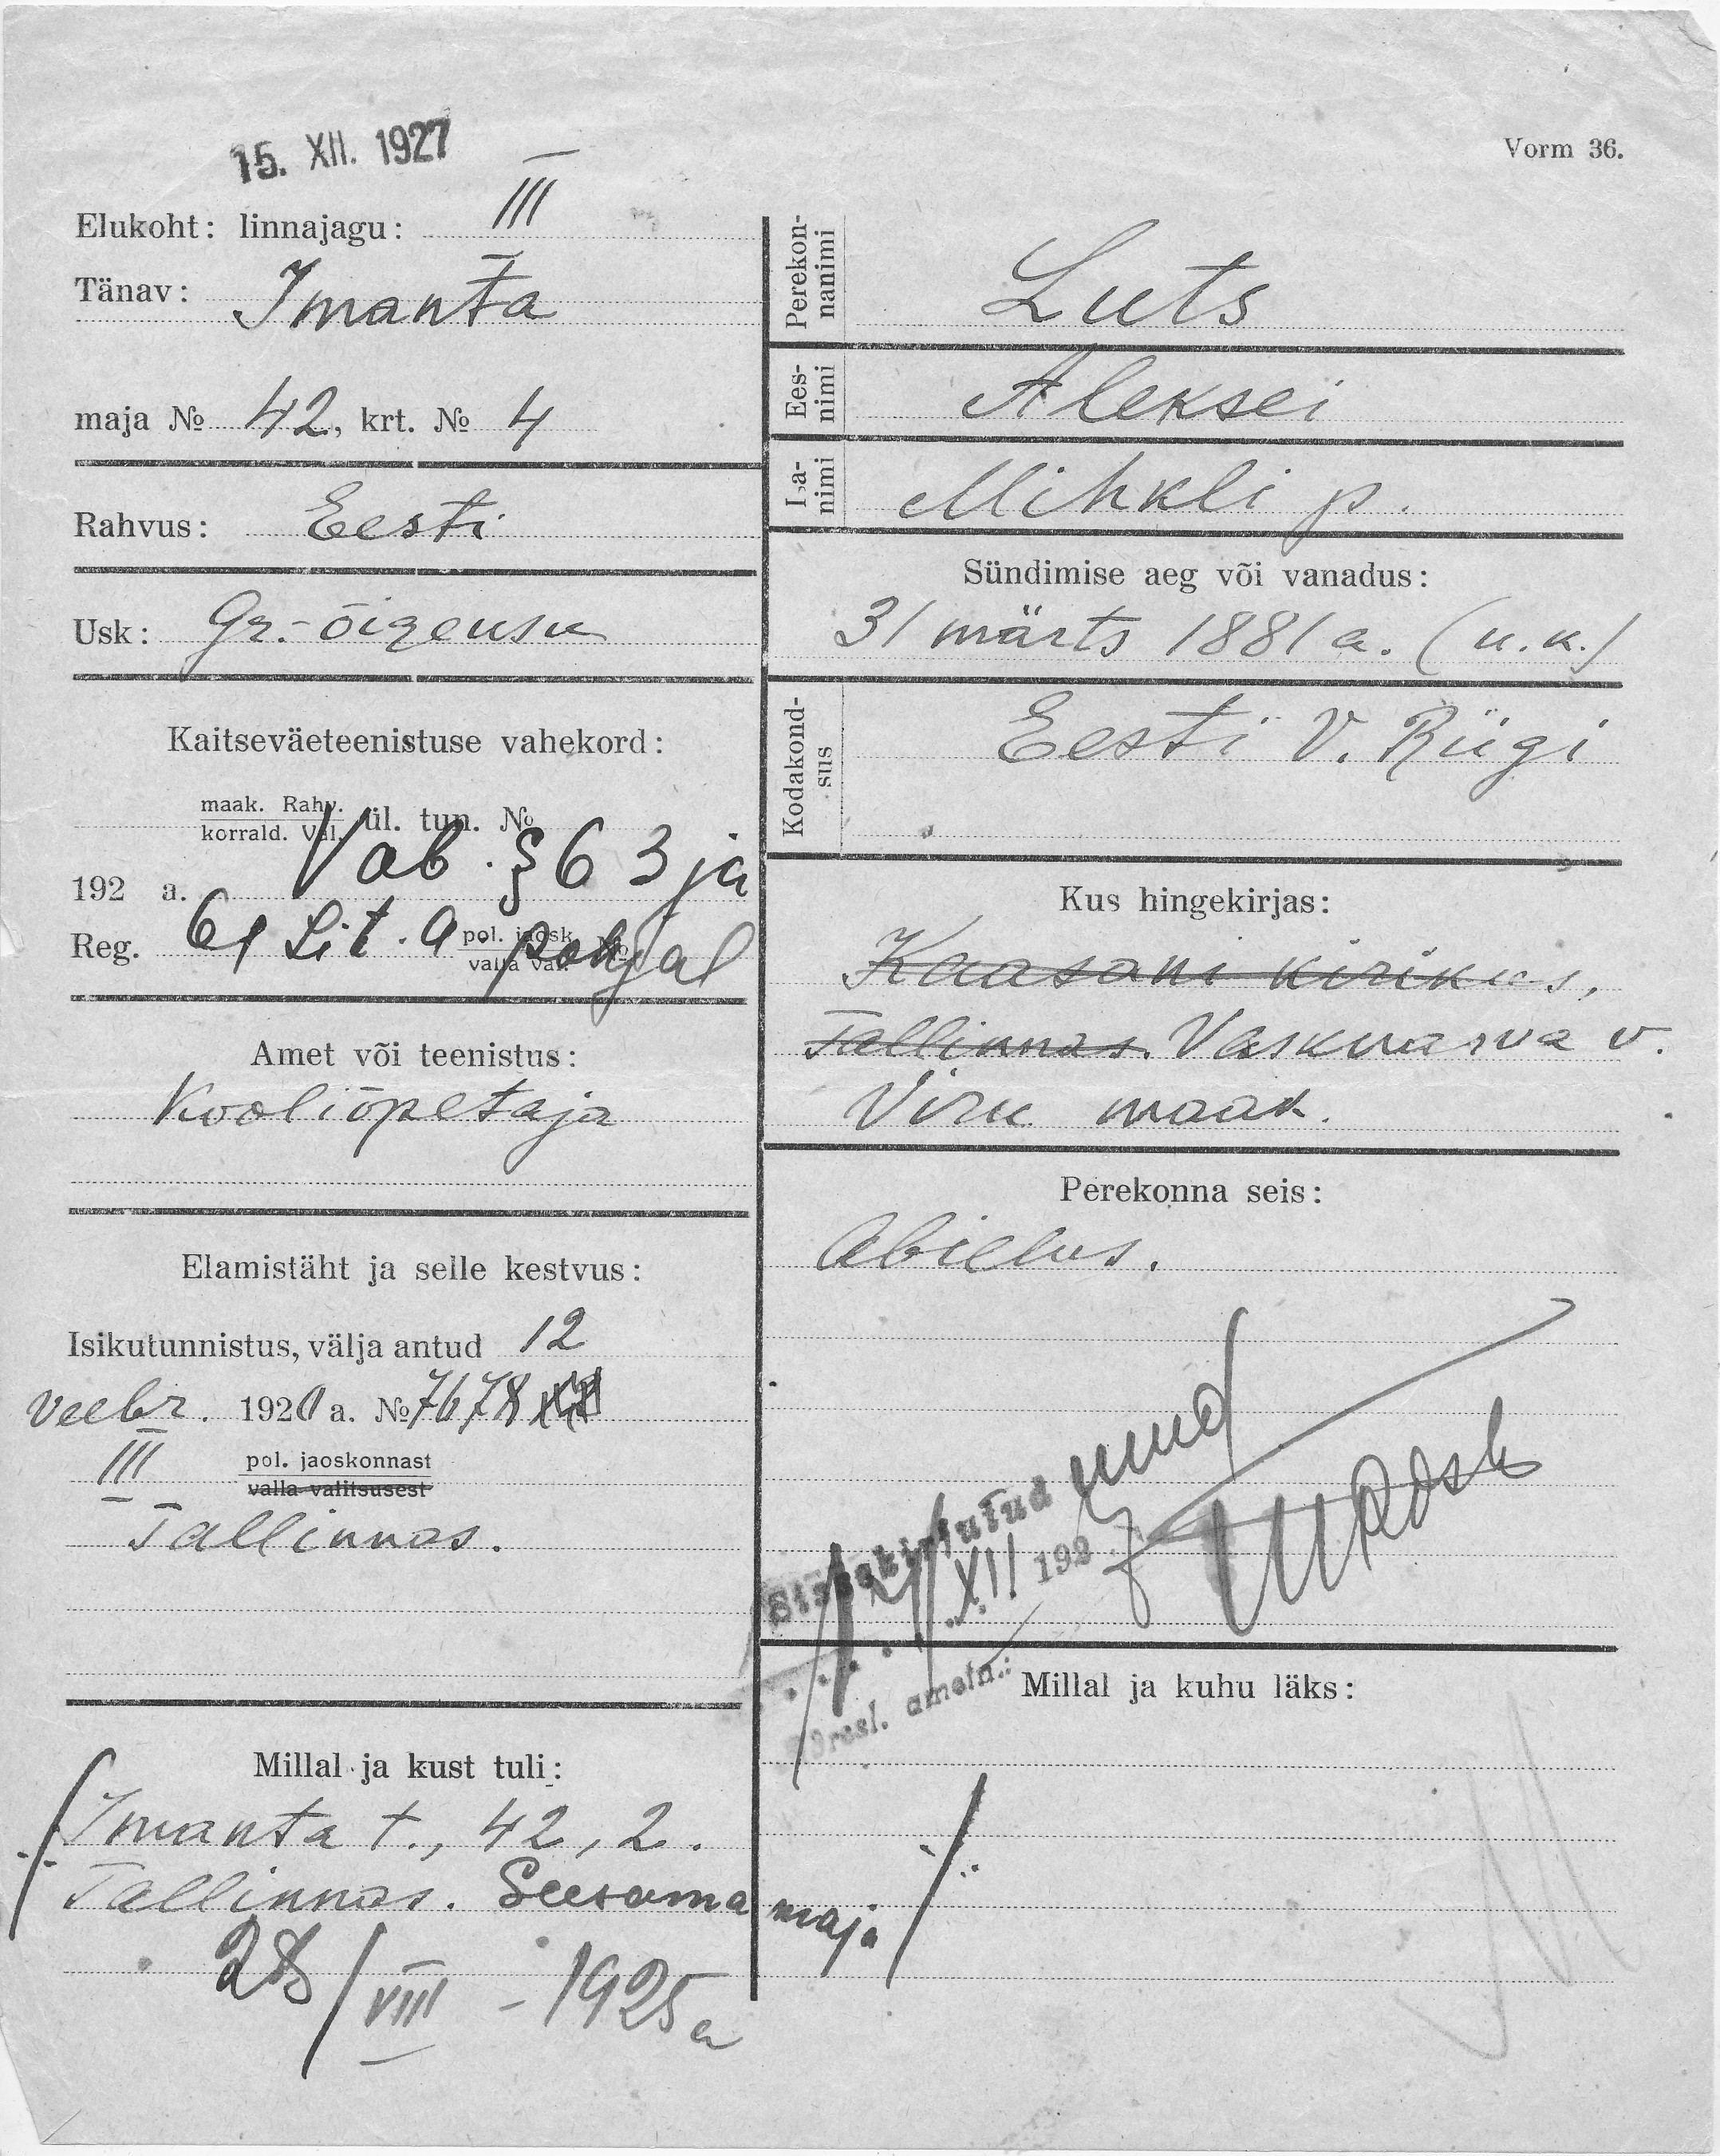 15. XII. 1927
Vorm 36.
Elukoht: linnajagu: III
Tänav: Imanta
maja № 42, krt. № 4
Rahvus: Eesti
Usk: Gr.-õigeusu
Kaitseväeteenistuse vahekord:
maak. Rahv.
korrald. Val. ül. tun. №
Vab. § 63 ja
192 a.
Reg. 61 Lit. a põhjal pol. jaosk. №
valla val.
Amet või teenistus:
Kooliõpetaja
Elamistäht ja selle kestvus:
Isikutunnistus, välja antud 12
veebr. 1920 a. № 7678
III pol. jaoskonnast
valla valitsusest
Tallinnas.
Millal ja kust tuli:
Imanta t., 42, 2.
Tallinnas. Seesama maja
28/VIII - 1925 a
Perekon-
nanimi
Luts
Ees-
nimi
Aleksei
Isa-
nimi
Mihkli p.
Sündimise aeg või vanadus:
31 märts 1881 a. (u.k.)
Kodakond-
sus
Eesti V. Riigi
Kus hingekirjas:
Kaasani kirikus,
Tallinnas. Vasknarva v.
Viru maak.
Perekonna seis:
Abielus.
Sissekirjutud
XII 192
Adresl. ametn.:
Millal ja kuhu läks: